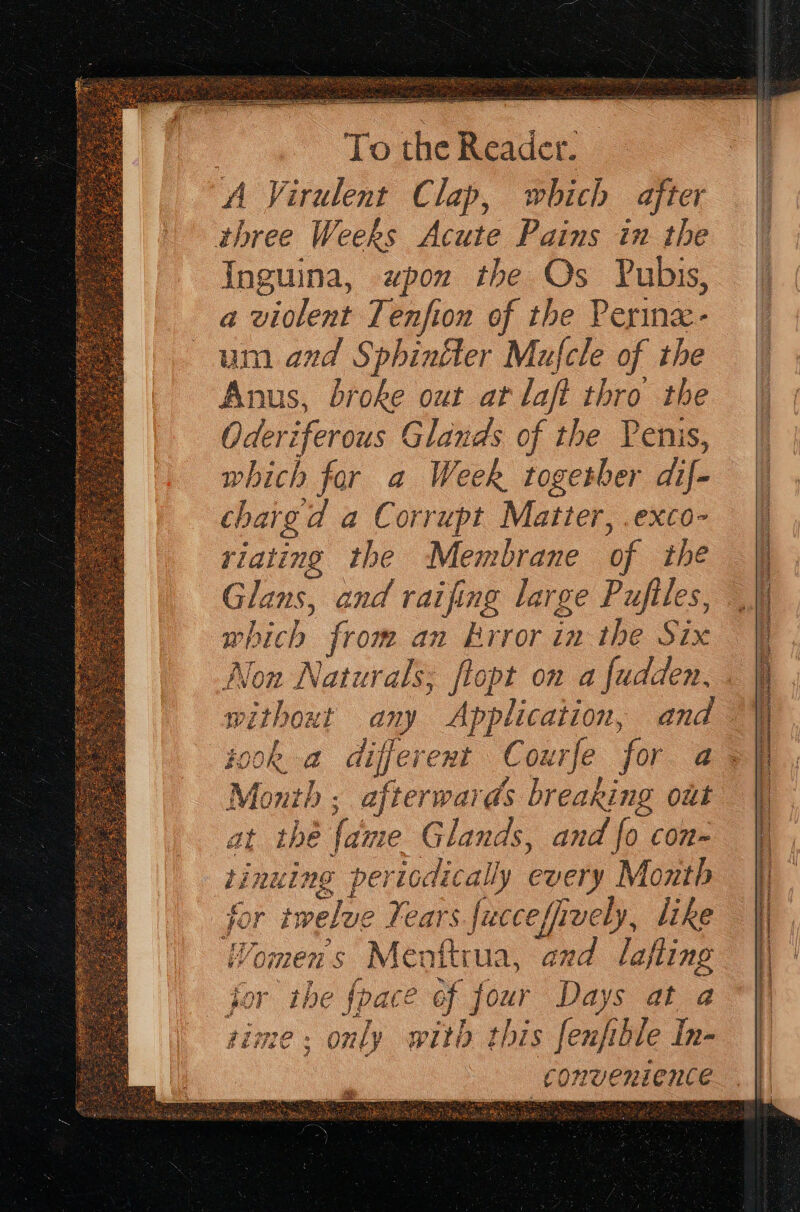 To the Reader.
A Virulent Clap, which after
three Weeks Acute Pains in the
Inguina, upon the Os Pubis,
a violent Tenſion of the Perinæ-
um and Sphincter Muſcle of the
Anus, broke out at laſt thro' the
Oderiferous Glands of the Penis,
which for a Week together diſ-
charg'd a Corrupt Matter, exco-
riating the Membrane of the
Glans, and raiſing large Puſtles,
which from an Error in the Six
Non Naturals; ſtopt on a ſudden,
without any Application, and
took a different Courſe for a
Month; afterwards breaking out
at the ſame Glands, and ſo con-
tinuing periodically every Month
for twelve Years ſucceſſively, like
Women's Menſtrua, and laſting
for the ſpace of four Days at a
time; only with this ſenſible In-
convenience